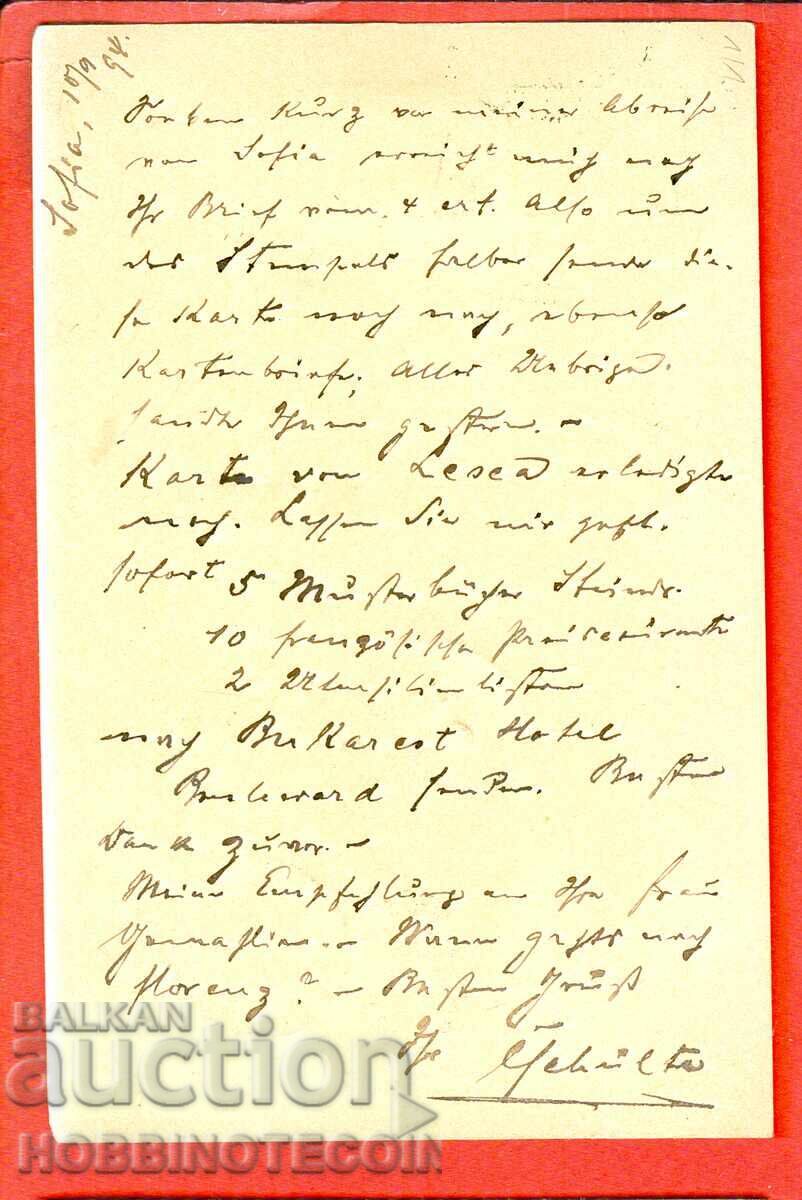 Sofia, 10/9 94.
Soeben kurz vor meiner Abreise
von Sofia erreicht mich noch
Ihr Brief vom 4 crt. Also um
des Stempels halber sende die-
se Karte noch nach, ebenso
Kartenbriefe. Alles Uebrige
sandte Ihnen gestern. –
Karte von erledigte
noch. Lassen Sie mir gefl.
sofort 5 Musterbücher
10 französische Preiscourante
2 Utensilienlisten
nach Bukarest Hotel
Boulevard senden. Besten
Dank zuvor. –
Meine Empfehlung an Ihre Frau
Gemahlin. – Wann gehts nach
Florenz? – Besten Gruß
Ihr Schulte
BALKAN
auction
HOBBINOTECOIN